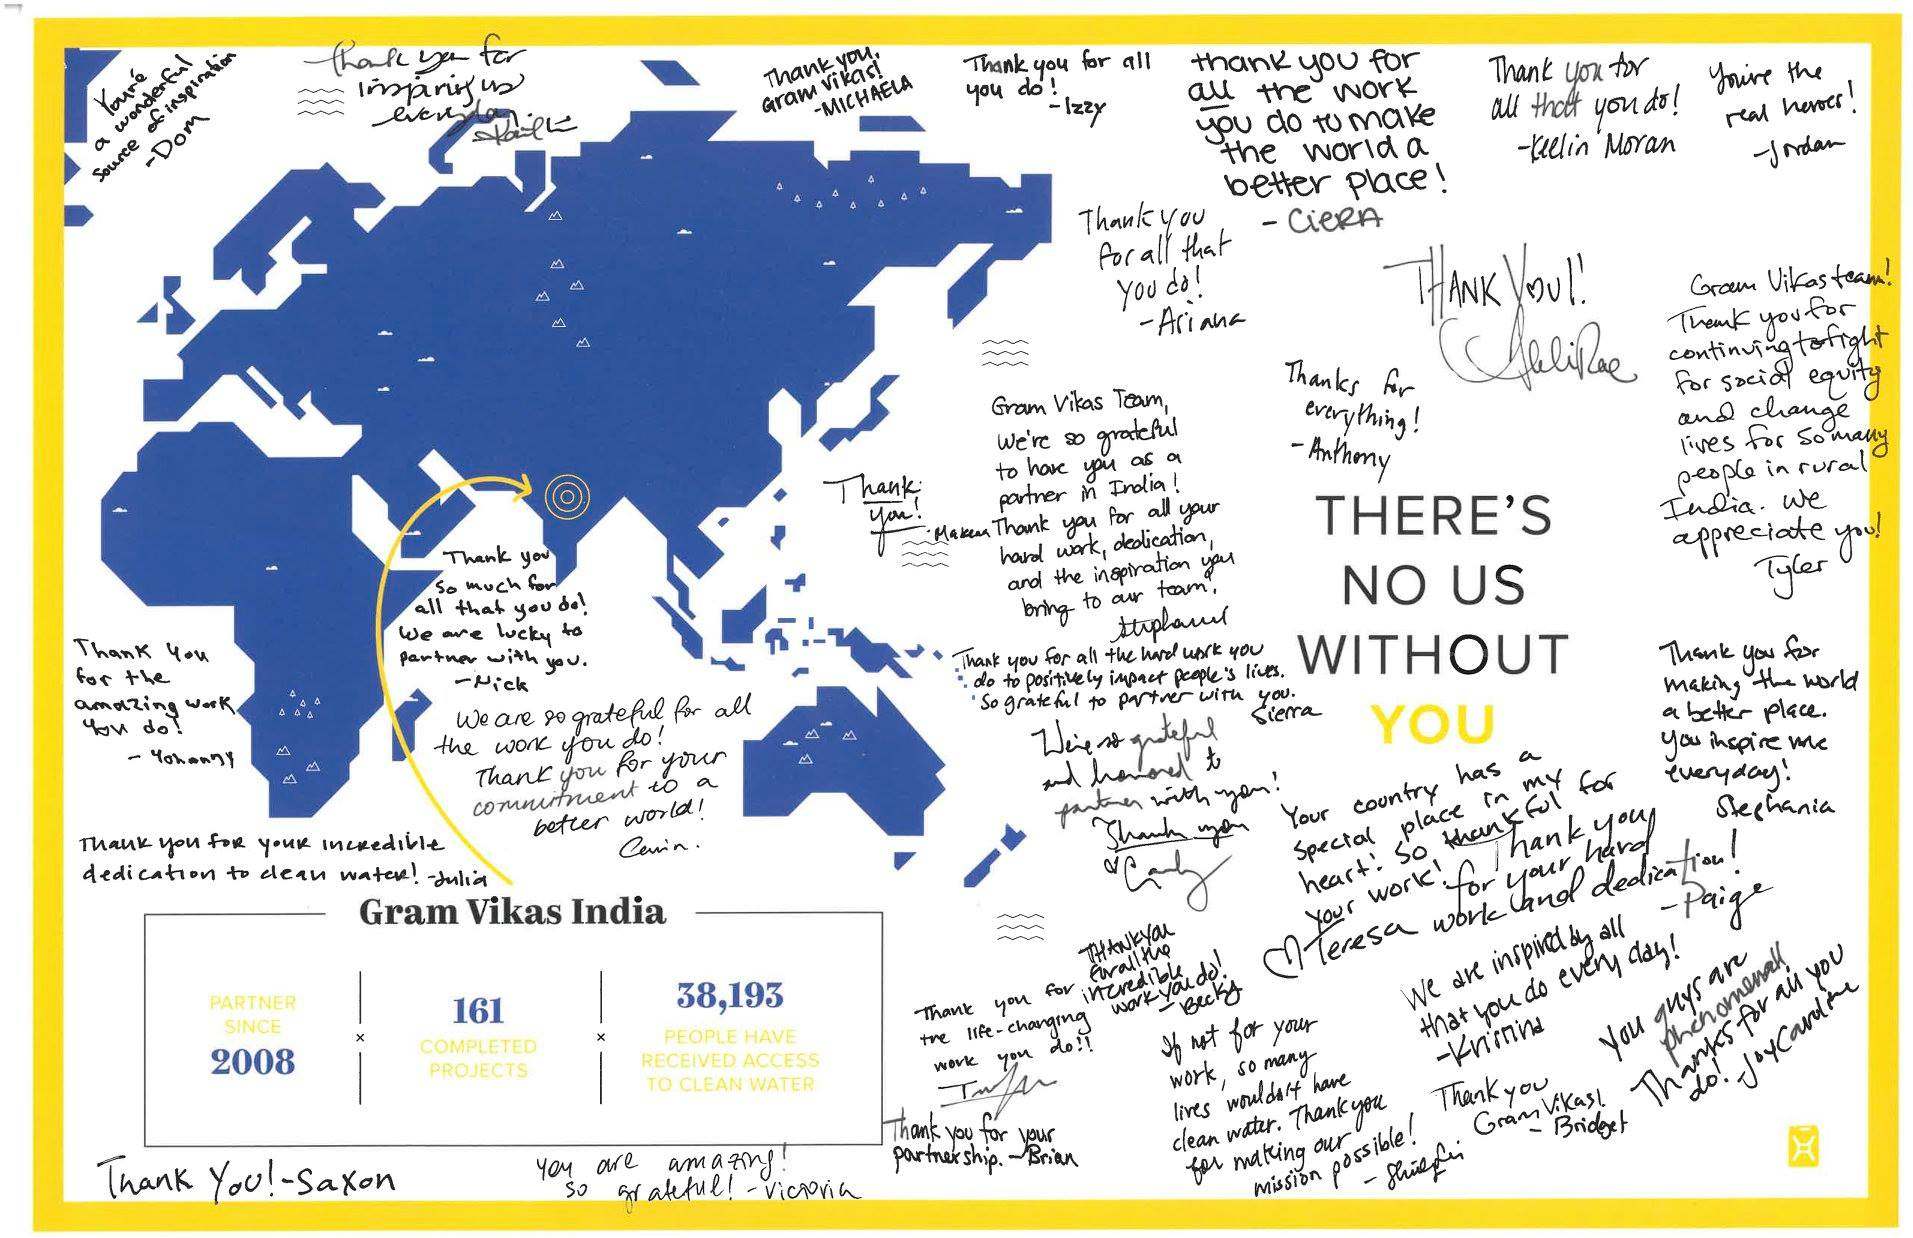 You're
a wonderful
source of inspiration
-Dom
Thank you for
inspiring us
everyday.
Thank you,
Gram Vikas!
-MICHAELA
Thank you for all
you do!
-Izzy
thank you for
all the work
you do to make
the world a
better place!
- CiERA
Thank you for
all that you do!
-Keelin Moran
You're the
real heroes!
-Jordan
Thank you
for all that
you do!
-Ariana
THANK YOU!!
Gram Vikas team!
Thank you for
continuing to fight
for social equity
and change
lives for so many
people in rural
India. We
appreciate you!
Tyler
Thanks for
everything!
-Anthony
Gram Vikas Team,
We're so grateful
to have you as a
partner in India!
Thank you for all your
hard work, dedication,
and the inspiration you
bring to our team!
Thank
you!
THERE'S
NO US
WITHOUT
YOU
Thank you
so much for
all that you do!
We are lucky to
partner with you.
-Nick
Thank you for all the hard work you
do to positively impact people's lives.
So grateful to partner with you.
Sierra
Thank you
for the
amazing work
you do!
- Yohanny
We are so grateful for all
the work you do!
Thank you for your
commitment to a
better world!
We're so grateful
and honored to
partner with you!
Thank you
Thank you for
making the world
a better place.
You inspire me
everyday!
Stephania
Your country has a
special place in my
heart! So thankful for
your work!
Teresa
Thank you
for your hard
work and dedication!
-Paige
Thank you for your incredible
dedication to clean water! -Julia
Gram Vikas India
PARTNER
SINCE
2008
161
COMPLETED
PROJECTS
38,193
PEOPLE HAVE
RECEIVED ACCESS
TO CLEAN WATER
THANK YOU
for all the
incredible
work you do!
-Becky
Thank you for
the life-changing
work you do!!
We are inspired by all
that you do every day!
-Kristina
You guys are
phenomenal!
Thanks for all you
do! Joy Caroline
If not for your
work, so many
lives wouldn't have
clean water. Thank you
for making our
mission possible!
Thank you
Gram Vikas!
- Bridget
Thank you for your
partnership. -Brian
Thank You!-Saxon
you are amazing!
so grateful! -Victoria